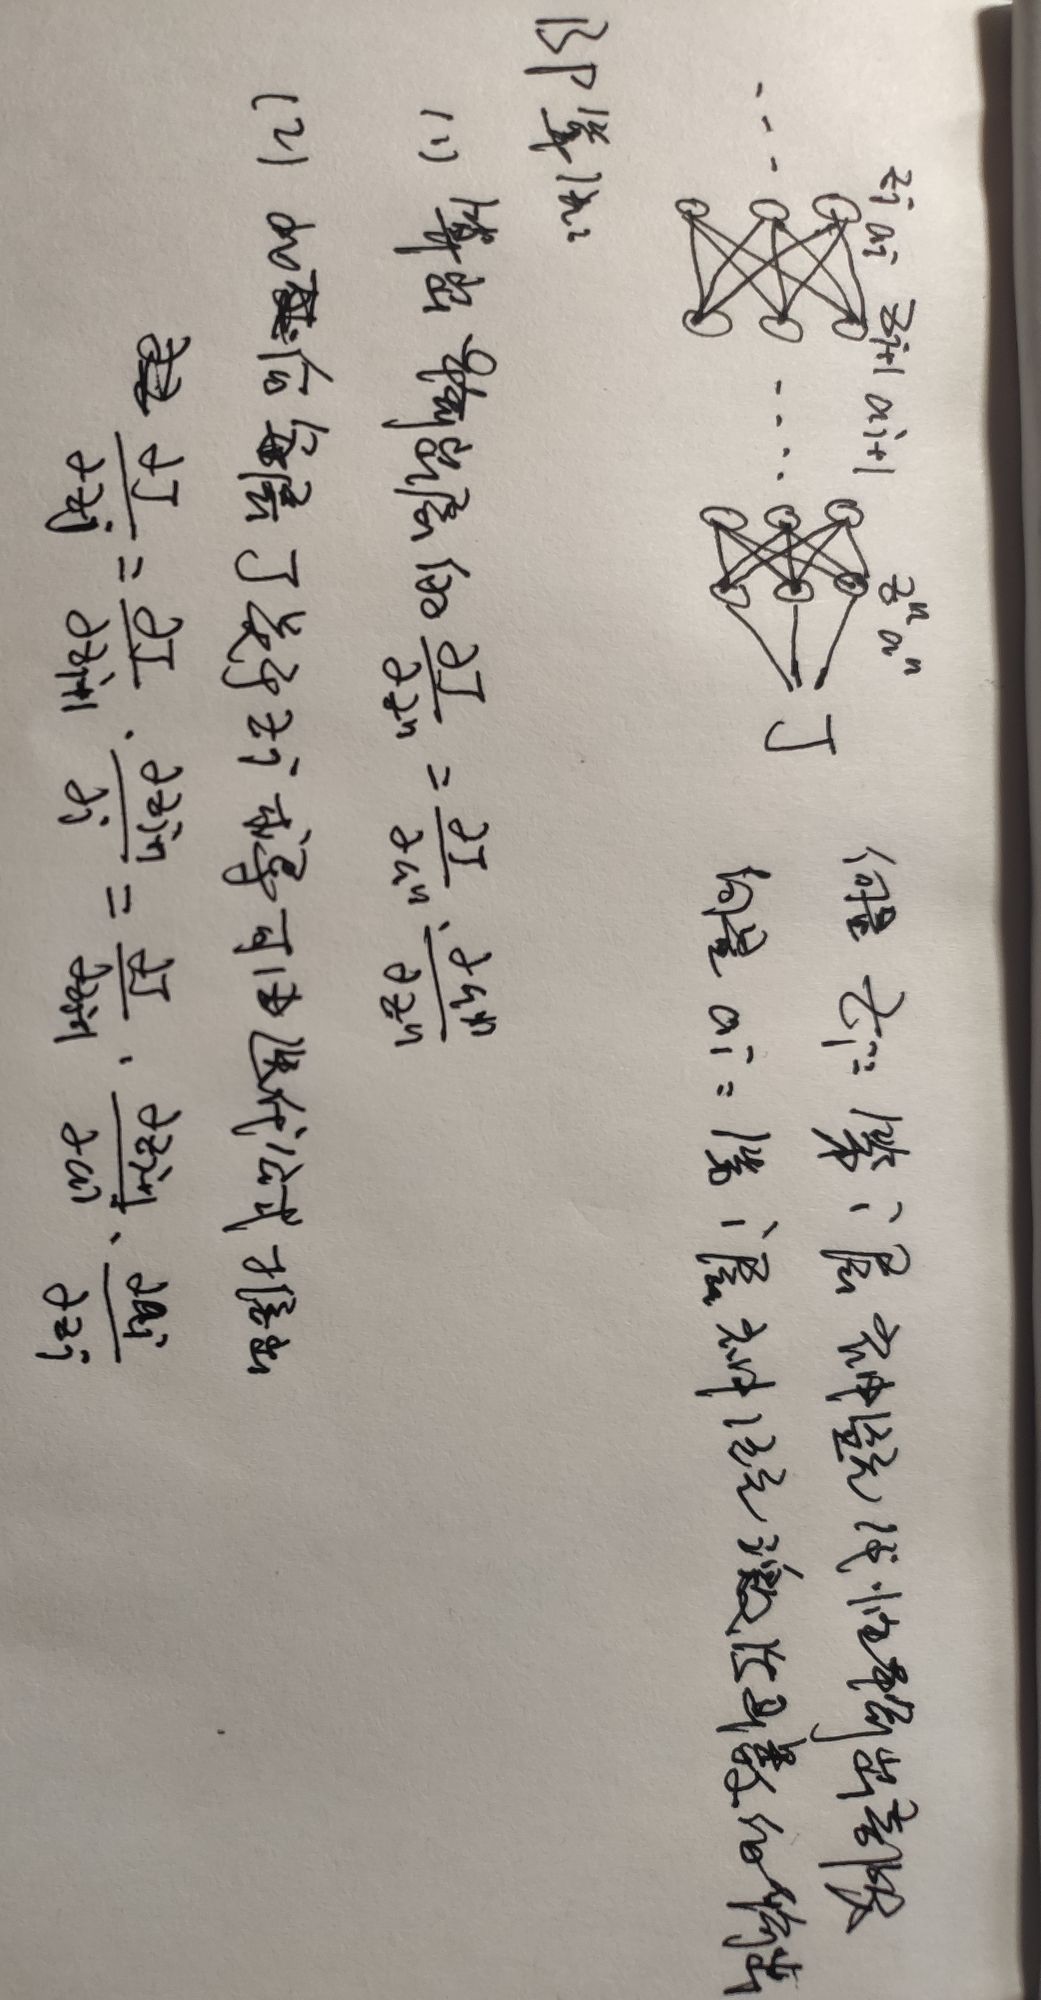 zj aj zj+1 aj+1 zⁿ aⁿ
J
向量 zi = 第 i 层 神经元 线性输出部分
向量 ai = 第 i 层 神经元 激活函数的输出
BP算法:
(1) 算出 输出层 的 ∂J/∂zⁿ = ∂J/∂aⁿ · ∂aⁿ/∂zⁿ
(2) 后每层 J 关于 zj 求导 可由 迭代公式 推出
∂J/∂zj = ∂J/∂zj+1 · ∂zj+1/∂j = ∂J/∂zj+1 · ∂zj+1/∂aj · ∂aj/∂zj